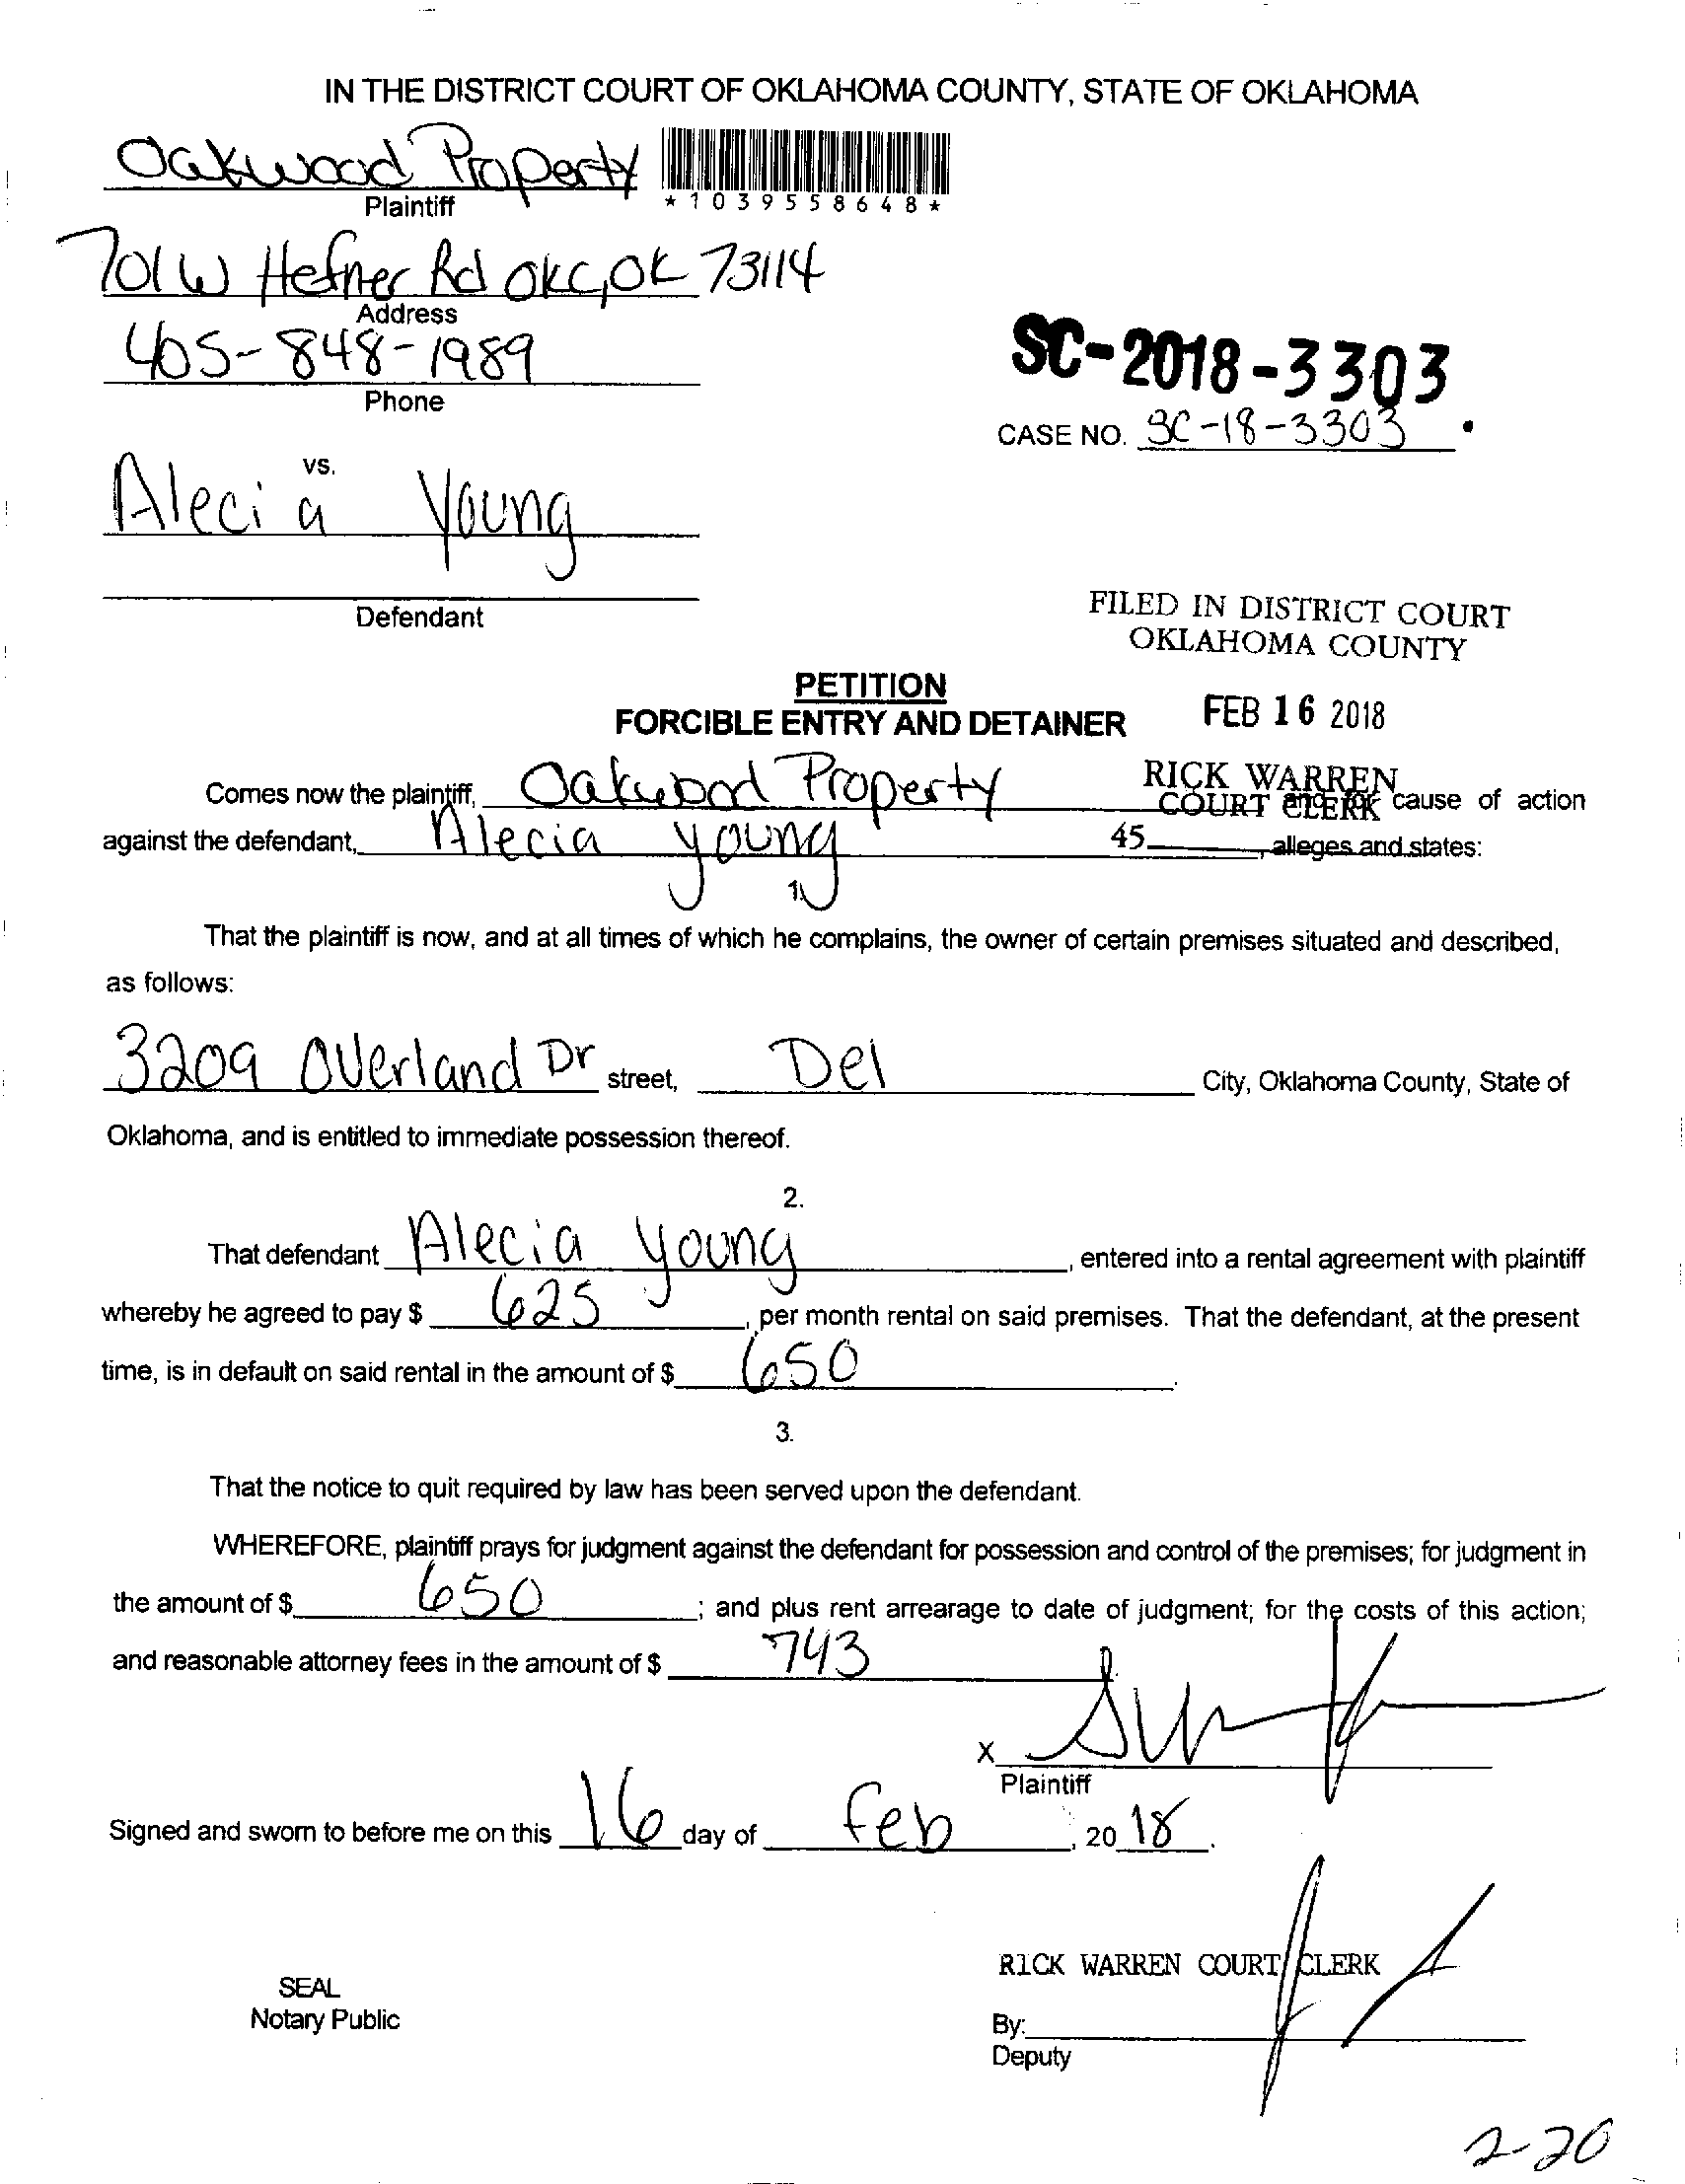 IN THE DISTRICT COURT OF OKLAHOMA COUNTY, STATE OF OKLAHOMA
Oakwood Property
Plaintiff
*1039558648*
701 W Hefner Rd OKC, OK 73114
Address
405-848-1989
Phone
SC-2018-3303
CASE NO. SC-18-3303
vs.
Alecia Young
Defendant
FILED IN DISTRICT COURT
OKLAHOMA COUNTY
PETITION
FORCIBLE ENTRY AND DETAINER
FEB 16 2018
RICK WARREN
COURT CLERK
Comes now the plaintiff, Oakwood Property and for cause of action
against the defendant, Alecia Young 45 , alleges and states:
1.
That the plaintiff is now, and at all times of which he complains, the owner of certain premises situated and described,
as follows:
3209 Overland Dr street, Del City, Oklahoma County, State of
Oklahoma, and is entitled to immediate possession thereof.
2.
That defendant Alecia Young , entered into a rental agreement with plaintiff
whereby he agreed to pay $ 625 , per month rental on said premises. That the defendant, at the present
time, is in default on said rental in the amount of $ 650 .
3.
That the notice to quit required by law has been served upon the defendant.
WHEREFORE, plaintiff prays for judgment against the defendant for possession and control of the premises; for judgment in
the amount of $ 650 ; and plus rent arrearage to date of judgment; for the costs of this action;
and reasonable attorney fees in the amount of $ 743
X
Plaintiff
Signed and sworn to before me on this 16 day of Feb , 20 18.
RICK WARREN COURT CLERK
SEAL
Notary Public
By:
Deputy
2-20